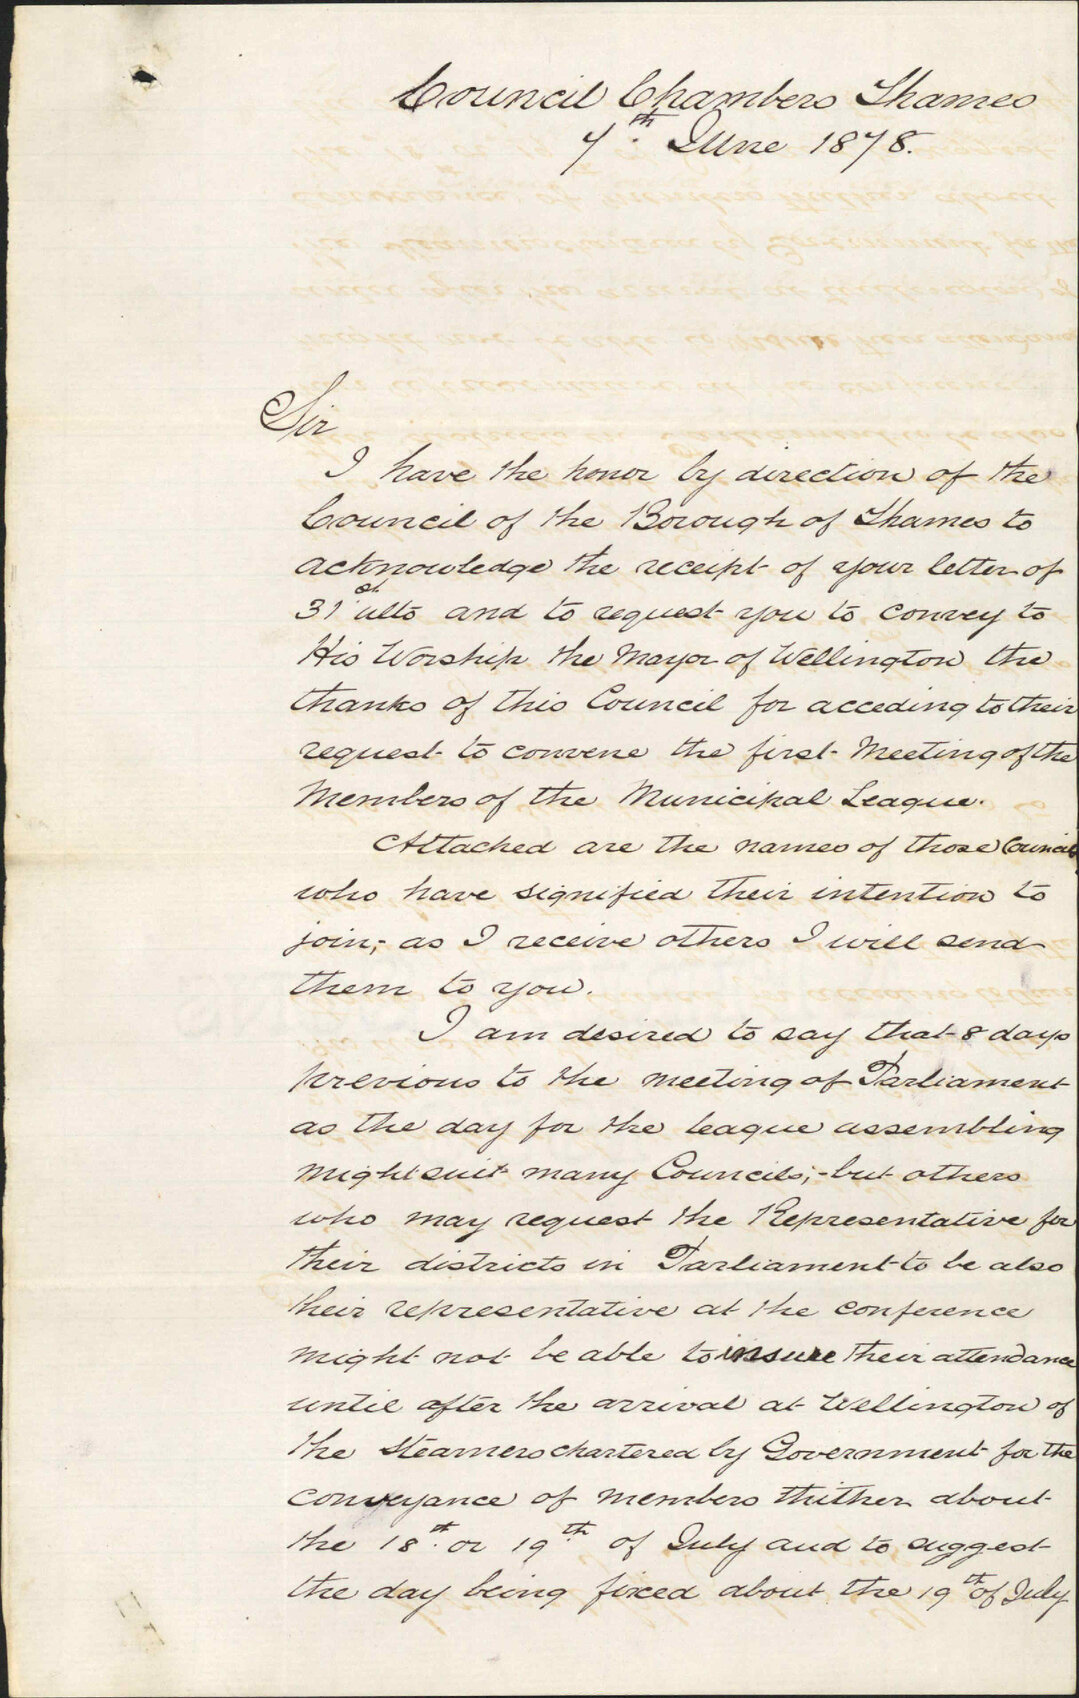 Council Chambers Thames
7th. June 1878.
Sir
I have the honor by direction of the
Council of the Borough of Thames to
acknowledge the receipt of your letter of
31st ulto and to request you to convey to
His Worship the Mayor of Wellington the
thanks of this Council for acceding to their
request to convene the first Meeting of the
Members of the Municipal League.
Attached are the names of those Councils
who have signified their intention to
join;- as I receive others I will send
them to you.
I am desired to say that 8 days
previous to the meeting of Parliament
as the day for the league assembling
might suit many Councils;- but others
who may request the Representative for
their districts in Parliament to be also
their representative at the conference
might not be able to insure their attendance
until after the arrival at Wellington of
the steamers chartered by Government for the
conveyance of members thither about
the 18th. or 19th. of July and to suggest
the day being fixed about the 19th of July